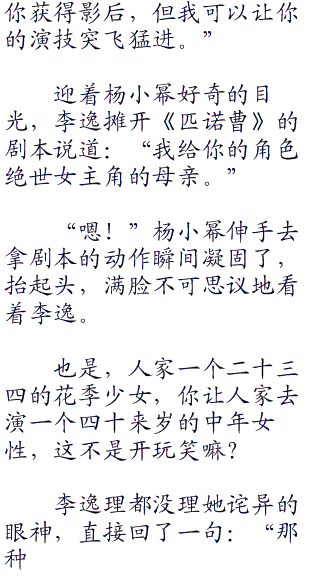 你获得影后，但我可以让你
的演技突飞猛进。”
迎着杨小幂好奇的目
光，李逸摊开《匹诺曹》的
剧本说道：“我给你的角色
绝世女主角的母亲。”
“嗯！”杨小幂伸手去
拿剧本的动作瞬间凝固了，
抬起头，满脸不可思议地看
着李逸。
也是，人家一个二十三
四的花季少女，你让人家去
演一个四十来岁的中年女
性，这不是开玩笑嘛？
李逸理都没理她诧异的
眼神，直接回了一句：“那
种